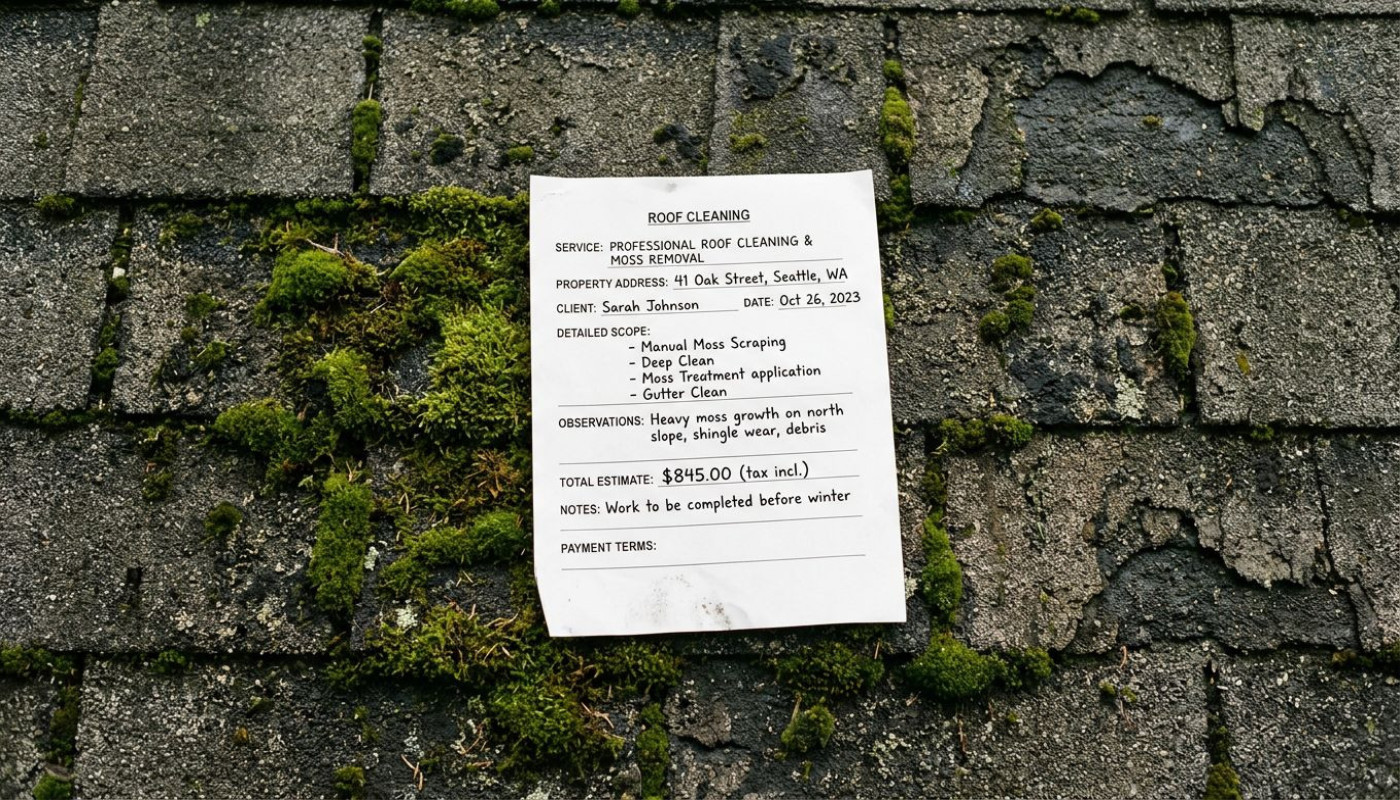 ROOF CLEANING
SERVICE: PROFESSIONAL ROOF CLEANING &
MOSS REMOVAL
PROPERTY ADDRESS: 41 Oak Street, Seattle, WA
CLIENT: Sarah Johnson DATE: Oct 26, 2023
DETAILED SCOPE:
- Manual Moss Scraping
- Deep Clean
- Moss Treatment application
- Gutter Clean
OBSERVATIONS: Heavy moss growth on north
slope, shingle wear, debris
TOTAL ESTIMATE: $845.00 (tax incl.)
NOTES: Work to be completed before winter
PAYMENT TERMS: